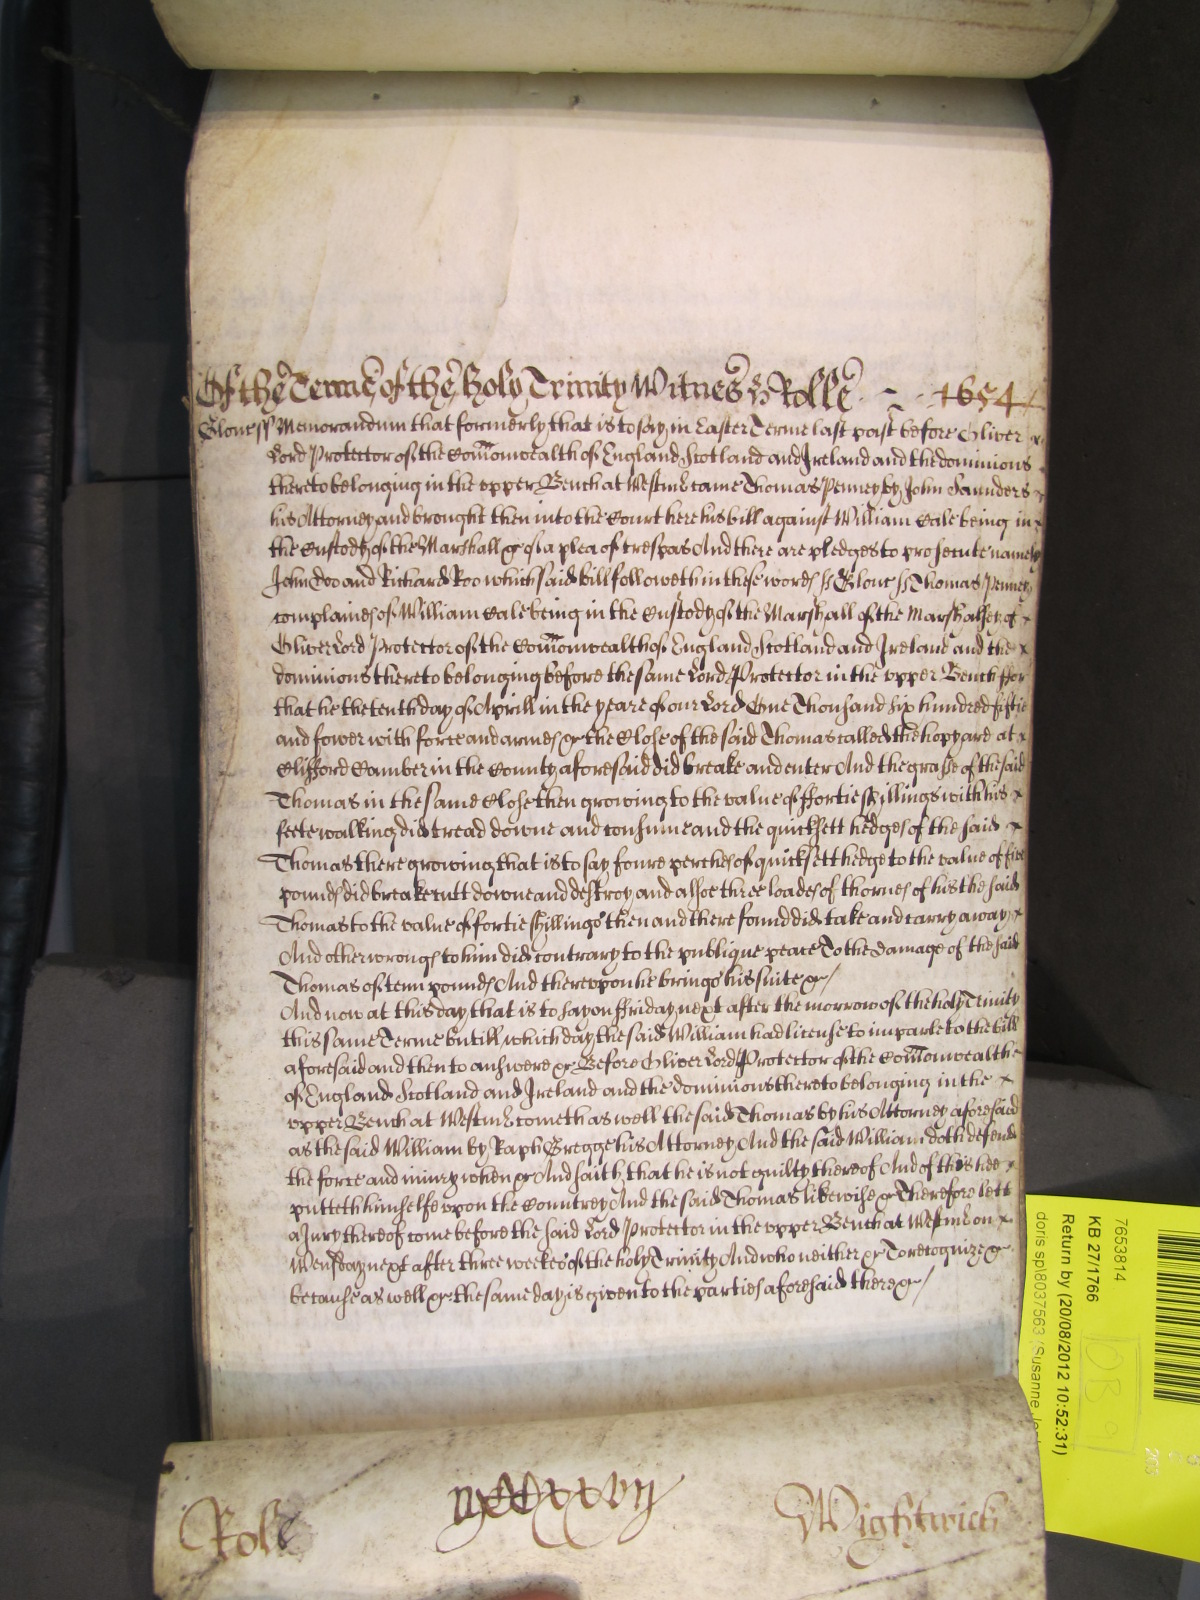 Of the Terme of the Holy Trinity Witnes H: Rolle 1654
Gloucess Memorandum that formerly that is to say in Easter Terme last past before Oliver
Lord Protector of the Comonwealth of England Scotland and Ireland and the dominions
thereto belonging in the upper Bench at Westmr came Thomas Penney by John Saunders
his Attorney and brought then into the Court here his bill against William Cale being in
the Custody of the Marshall &c of a plea of trespas And there are pledges to prosecute namely
John Doo and Richard Roo which said bill followeth in these words ss Glouc ss Thomas Penney
complaines of William Cale being in the Custody of the Marshall of the Marshalsey of
Oliver Lord Protector of the Comonwealth of England Scotland and Ireland and the
dominions thereto belonging before the same Lord Protector in the upper Bench ffor
that he the tenth day of Aprill in the yeare of our Lord One Thousand six hundred fiftie
and fower with force and armes &c the Close of the said Thomas called the hopyard at
Clifford Camber in the County aforesaid did breake and enter And the grasse of the said
Thomas in the same Close then growing to the value of ffortie shillings with his
feete walking did tread downe and consume and the quicksett hedges of the said
Thomas there growing that is to say foure perches of quicksett hedge to the value of five
pounds did breake cutt downe and destroy and alsoe three loades of thornes of his the said
Thomas to the value of fortie shillings then and there found did take and carry away
And other wrongs to him did contrary to the publique peace To the damage of the said
Thomas of tenn pounds And thereupon he brings his suite &c
And now at this day that is to say on ffriday next after the morrow of the holy Trinity
this same Terme untill which day the said William had license to imparle to the bill
aforesaid and then to answere &c Before Oliver Lord Protector of the Comonwealthe
of England Scotland and Ireland and the dominions thereto belonging in the
upper Bench at Westmr cometh as well the said Thomas by his Attorney aforesaid
as the said William by Raph Gregge his Attorney And the said William doth defend
the force and iniury when &c And saith that he is not guilty thereof And of this hee
putteth himselfe upon the Countrey And the said Thomas likewise &c Therefore lett
a Jury thereof come before the said Lord Protector in the upper Bench at Westmr on
Wensday next after three weekes of the holy Trinity And who neither &c To recognize &c
because as well &c the same day is given to the parties aforesaid there &c
Rolle
Wightwick
7653814
KB 27/1766
Return by (20/08/2012 10:52:31)
doris sp\8037563 (Susanne